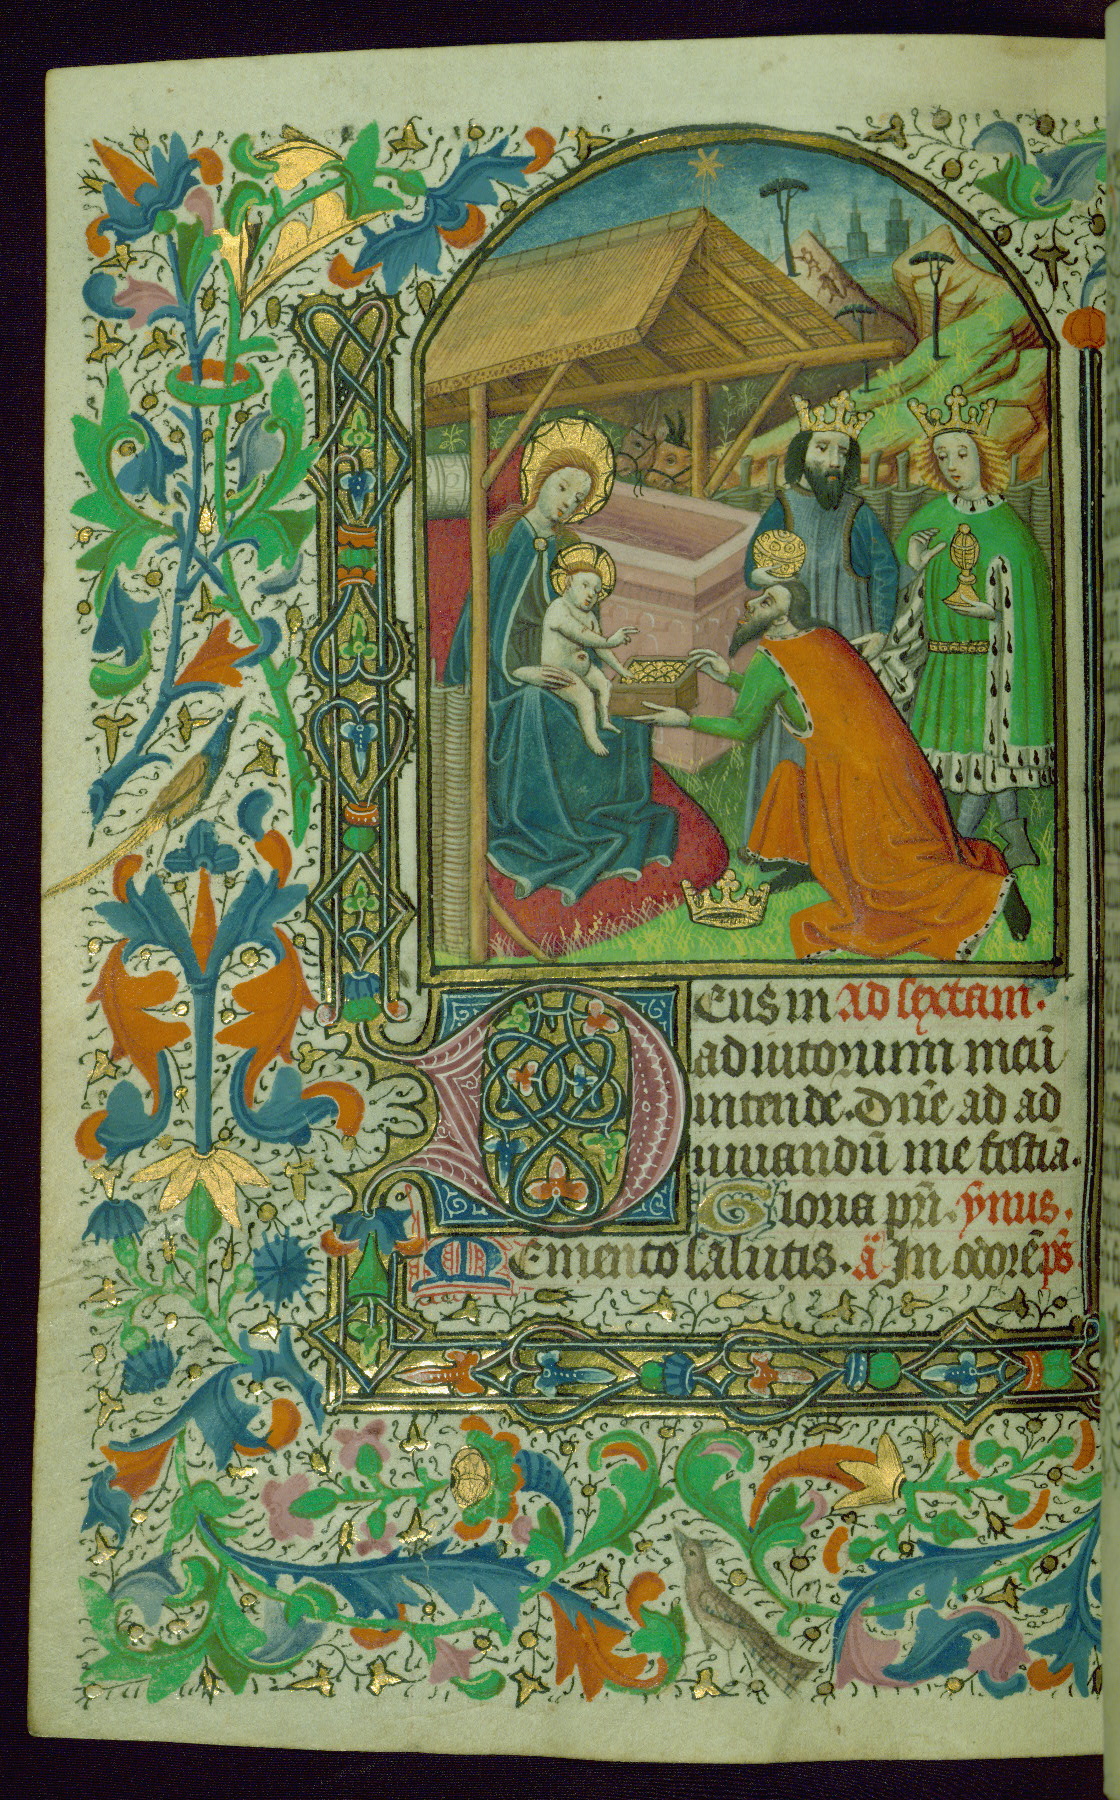 Deus in Ad sextam.
adiutorium meū
intende. Dñe ad ad
iuuandū me festīa.
Gloria pr̄i. ȳnus.
Memento salutis. ā In odorē ps̄.